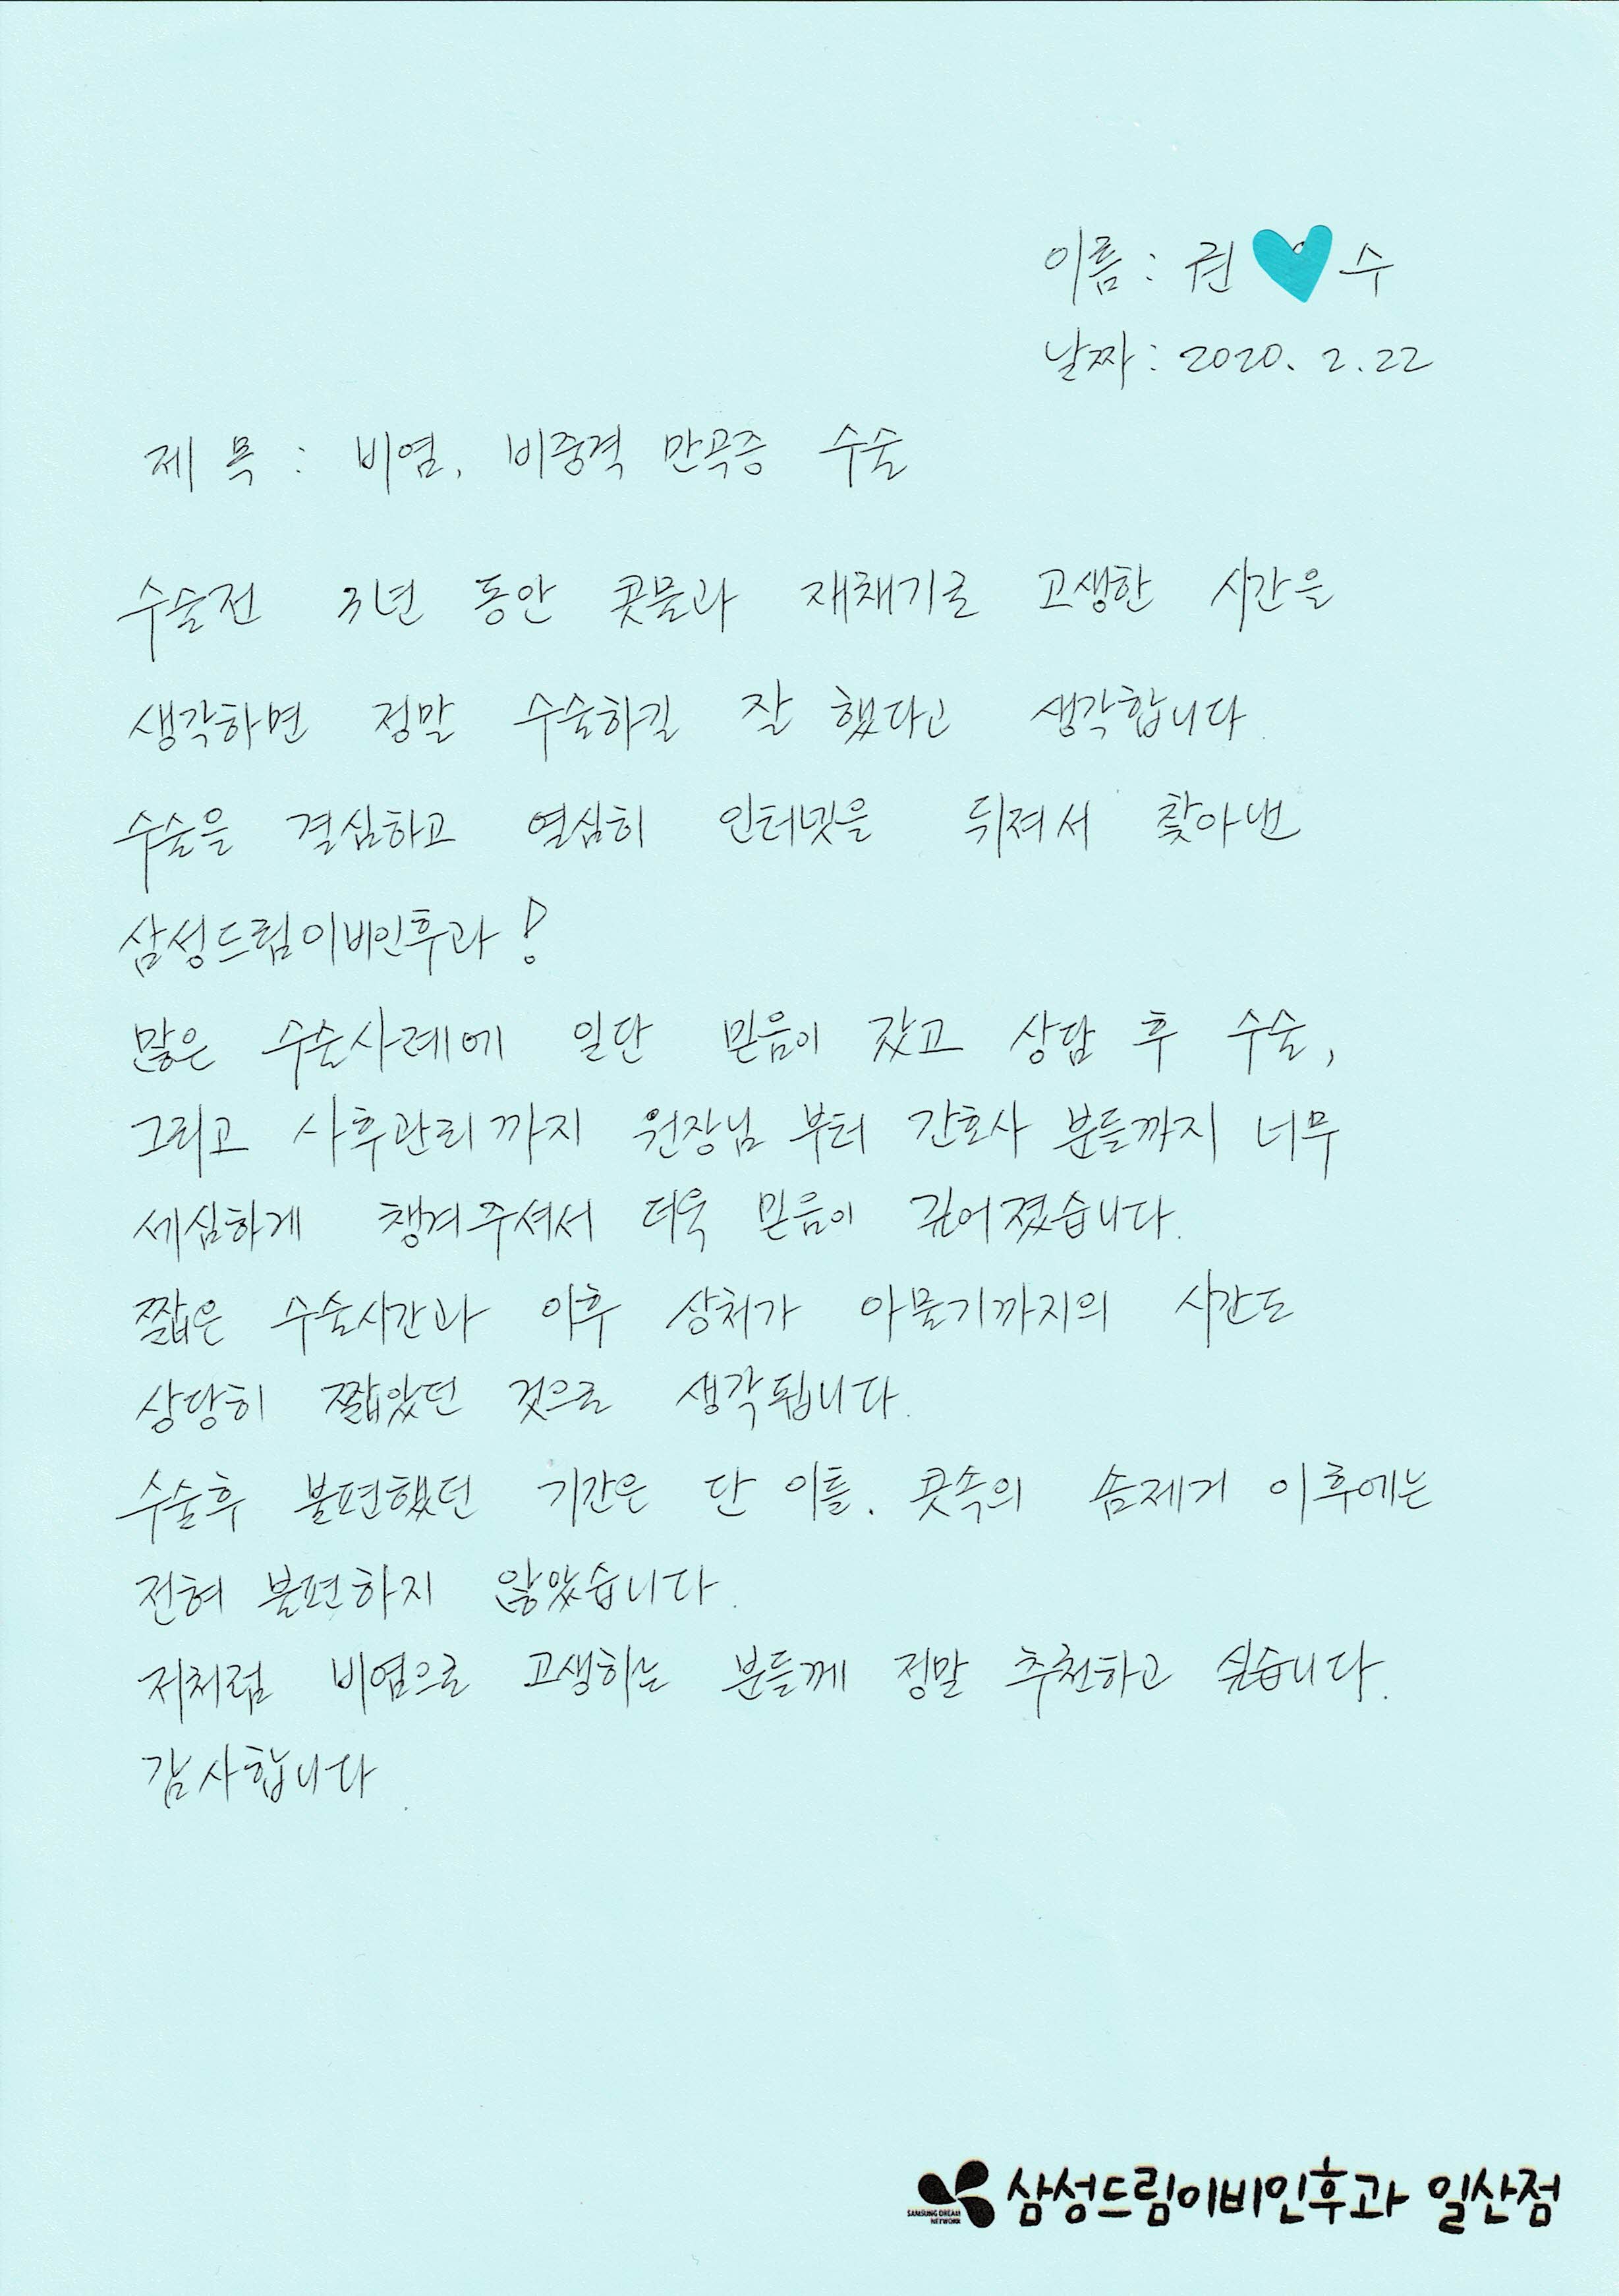 이름 : 권 수
날짜 : 2020. 2. 22
제 목 : 비염, 비중격 만곡증 수술
수술전 3년 동안 콧물과 재채기로 고생한 시간을
생각하면 정말 수술하길 잘 했다고 생각합니다.
수술을 결심하고 열심히 인터넷을 뒤져서 찾아낸
삼성드림이비인후과!
많은 수술사례에 일단 믿음이 갔고 상담 후 수술,
그리고 사후관리까지 원장님 부터 간호사 분들까지 너무
세심하게 챙겨주셔서 더욱 믿음이 깊어졌습니다.
짧은 수술시간과 이후 상처가 아물기까지의 시간도
상당히 짧았던 것으로 생각됩니다.
수술후 불편했던 기간은 단 이틀. 콧속의 솜제거 이후에는
전혀 불편하지 않았습니다.
저처럼 비염으로 고생하는 분들께 정말 추천하고 싶습니다.
감사합니다.
SAMSUNG DREAM
NETWORK
삼성드림이비인후과 일산점